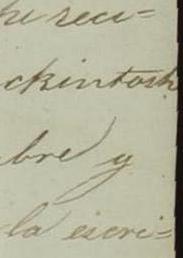 he reci=
ckintosh
bre y
la escri=